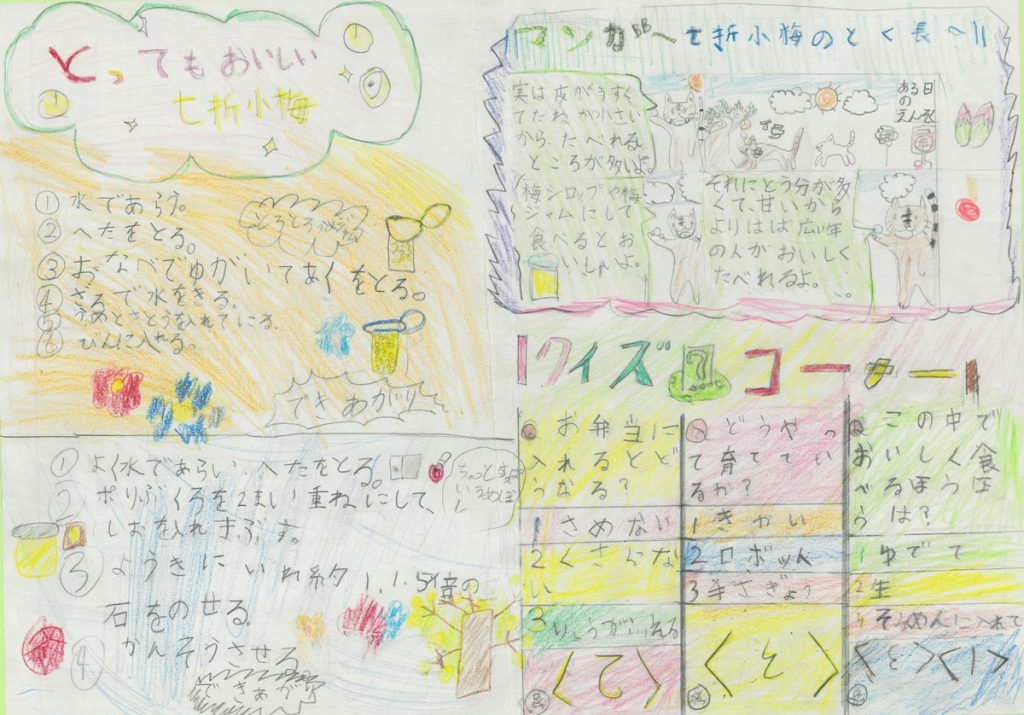 とってもおいしい
七折小梅
①水であらう。
②へたをとる。
③おなべでゆがいてあくをとる。
④ざるで水をきる。
⑤うめとさとうを入れてにる。
⑥びんに入れる。
できあがり
①よく水であらい、へたをとる。
ポリぶくろを2まい重ねにして、
しおを入れまぶす。
③ようきにいれ約1.5倍の
石をのせる。
④かんそうさせる
できあがり
マンガ〜七折小梅のとく長〜
ある日
の
実は皮がうすく
てたねが小さい
から、たべれる
ところが多いよ。
梅シロップや梅
ジャムにして
食べるとお
いしいよ。
それにとう分が多
くて、甘いから
よりはば広い年
の人がおいしく
たべれるよ。
クイズ?コーナー
お弁当に
入れるとど
うなる?
1さめない
2くさらな
い
3りょうがふえる
〈2〉
どうやっ
て育ててい
るか?
1きかい
2ロボット
3手さぎょう
〈3〉
この中で
おいしく食
べるほうほう
は?
1ゆでて
2生
そうめんに入れて